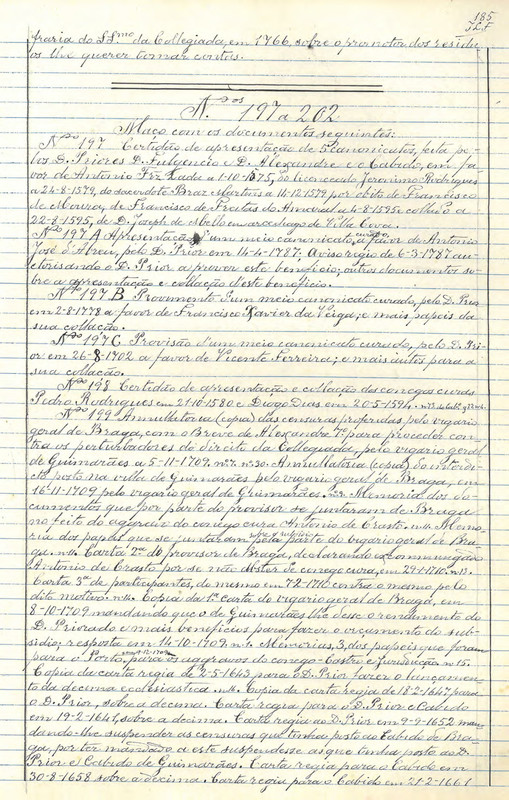 185
fraria do SS.mo da Collegiada, em 1766, sobre o promotor dos residu-
os lhe querer tomar contas.
N.os 197 a 202
Maço com os documentos seguintes:
N.º 197 Certidão de apresentação de 5 canonicatos, feita pe-
los D. Priores D. Fulgencio e D. Alexandre e o Cabido, em fa-
vor de Antonio Frz Ladu a 1-10-1575, do licenceado Jeronimo Rodrigues
a 24-8-1579, do sacerdote Braz Martins a 14-12-1579 por obito de Francisco
de Moura, de Francisco de Freitas do Amaral a 4-8-1595 e collação a
22-8-1595, de D. Joseph de Mello em arcediago de Villa Cova.
N.º 197 A Apresentação d'um meio canonicato curado a favor de Antonio
José d'Abreu, pelo D. Prior em 14-4-1787. Aviso regio de 6-3-1787 au-
ctorisando o D. Prior a prover este beneficio; outros documentos so-
bre a apresentação e collação d'este beneficio.
N.º 197 B Provimento d'um meio canonicato curado, pelo D. Prior
em 2-8-1778 a favor de Francisco Xavier da Veiga; e mais papeis da
sua collação.
N.º 197 C Provisão d'um meio canonicato curado, pelo D. Pri-
or em 26-8-1702 a favor de Vicente Ferreira; e mais autos para a
sua collação.
N.º 198 Certidão de apresentação e collação dos conegos curas
Pedro Rodrigues em 21-10-1580 e Diogo Dias em 20-5-1594.
N.º 199 Annullatoria (copia) das censuras proferidas pelo vigario
geral de Braga, com o Breve de Alexandre 7.º para proceder con-
tra os perturbadores do direito da Collegiada, pelo vigario geral
de Guimarães a 5-11-1709. n.º 7. n.º 30. Annullatoria (copia) do interdi-
cto posto na villa de Guimarães pelo vigario geral de Braga, em
16-11-1709 pelo vigario geral de Guimarães. Memoria dos do-
cumentos que por parte do provisor se juntaram de Braga
no feito do aggravo do conego cura Antonio de Crasto. n.º 11. Memo-
ria dos papeis que se juntaram pela parte do vigario geral de Bra-
ga. n.º 11. Carta 2.ª do provisor de Braga, declarando excommungado
Antonio de Crasto por se não abster de conego cura, em 29-1-1710. n.º 13.
Carta 3.ª de participantes, do mesmo em 7-2-1710 contra o mesmo pelo
dito motivo. n.º 14. Copia da 1.ª carta do vigario geral de Braga, em
8-10-1709 mandando que o de Guimarães lhe désse o rendimento do
D. Priorado e mais beneficios para fazer o orçamento do sub-
sidio; resposta em 14-10-1709 n.º 4. Memorias, 3, dos papeis que foram
para o Porto, para os aggravos do conego Castro e jurisdicção n.º 15.
Copia da carta regia de 2-5-1643 para o D. Prior fazer o lançamen-
to da decima ecclesiastica. n.º 4. Copia da carta regia de 18-2-1647 para
o D. Prior, sobre a decima. Carta regia para o D. Prior e Cabido
em 19-2-1647, sobre a decima. Carta regia ao D. Prior em 9-9-1652 man-
dando-lhe suspender as censuras que tinha posto ao Cabido de Bra-
ga, por ter mandado a este suspendesse as que tinha posto ao D.
Prior e Cabido de Guimarães. Carta regia para o Cabido em
30-8-1658 sobre a decima. Carta regia para o Cabido em 21-2-1661